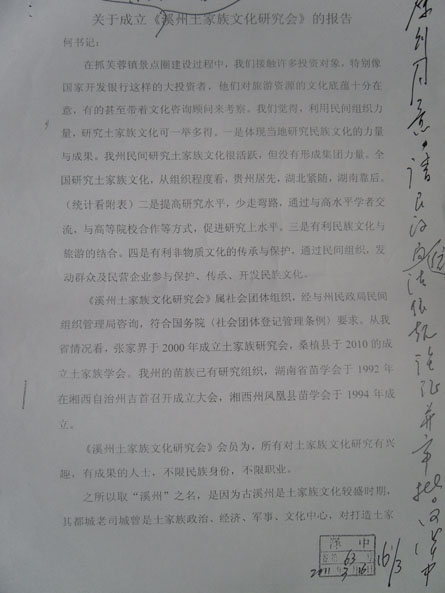 关于成立《溪州土家族文化研究会》的报告
何书记：
在抓芙蓉镇景点圈建设过程中，我们接触许多投资对象，特别像
国家开发银行这样的大投资者，他们对旅游资源的文化底蕴十分在
意，有的甚至带着文化咨询顾问来考察。我们觉得，利用民间组织力
量，研究土家族文化可一举多得。一是体现当地研究民族文化的力量
与成果。我州民间研究土家族文化很活跃，但没有形成集团力量。全
国研究土家族文化，从组织程度看，贵州居先，湖北紧随，湖南靠后。
（统计看附表）二是提高研究水平，少走弯路，通过与高水平学者交
流，与高等院校合作等方式，促进研究上水平。三是有利民族文化与
旅游的结合。四是有利非物质文化的传承与保护，通过民间组织，发
动群众及民营企业参与保护、传承、开发民族文化。
《溪州土家族文化研究会》属社会团体组织，经与州民政局民间
组织管理局咨询，符合国务院〈社会团体登记管理条例〉要求。从我
省情况看，张家界于2000年成立土家族研究会，桑植县于2010的成
立土家族学会。我州的苗族已有研究组织，湖南省苗学会于1992年
在湘西自治州吉首召开成立大会，湘西州凤凰县苗学会于1994年成
立。
《溪州土家族文化研究会》会员为，所有对土家族文化研究有兴
趣，有成果的人士，不限民族身份，不限职业。
之所以取“溪州”之名，是因为古溪州是土家族文化较盛时期，
其都城老司城曾是土家族政治、经济、军事、文化中心，对打造土家
原则同意。请民政
16/3
63
2011 3 16